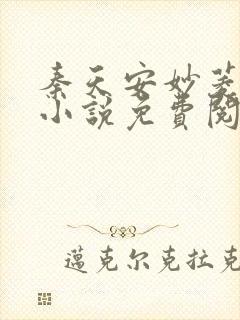 秦天安妙菱
小说免費閱
邁克尔克拉克